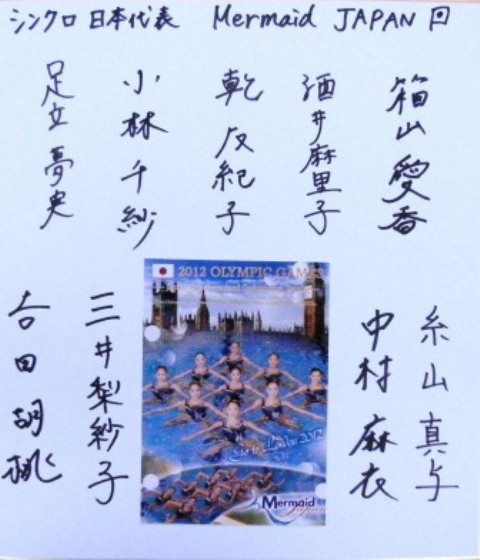 シンクロ 日本代表 Mermaid JAPAN 回
箱山 愛香
酒井麻里子
乾 友紀子
小林 千紗
足立 夢実
糸山 真与
中村 麻衣
三井梨紗子
吉田 胡桃
2012 OLYMPIC GAMES
Go to London 2012
Mermaid
Japan